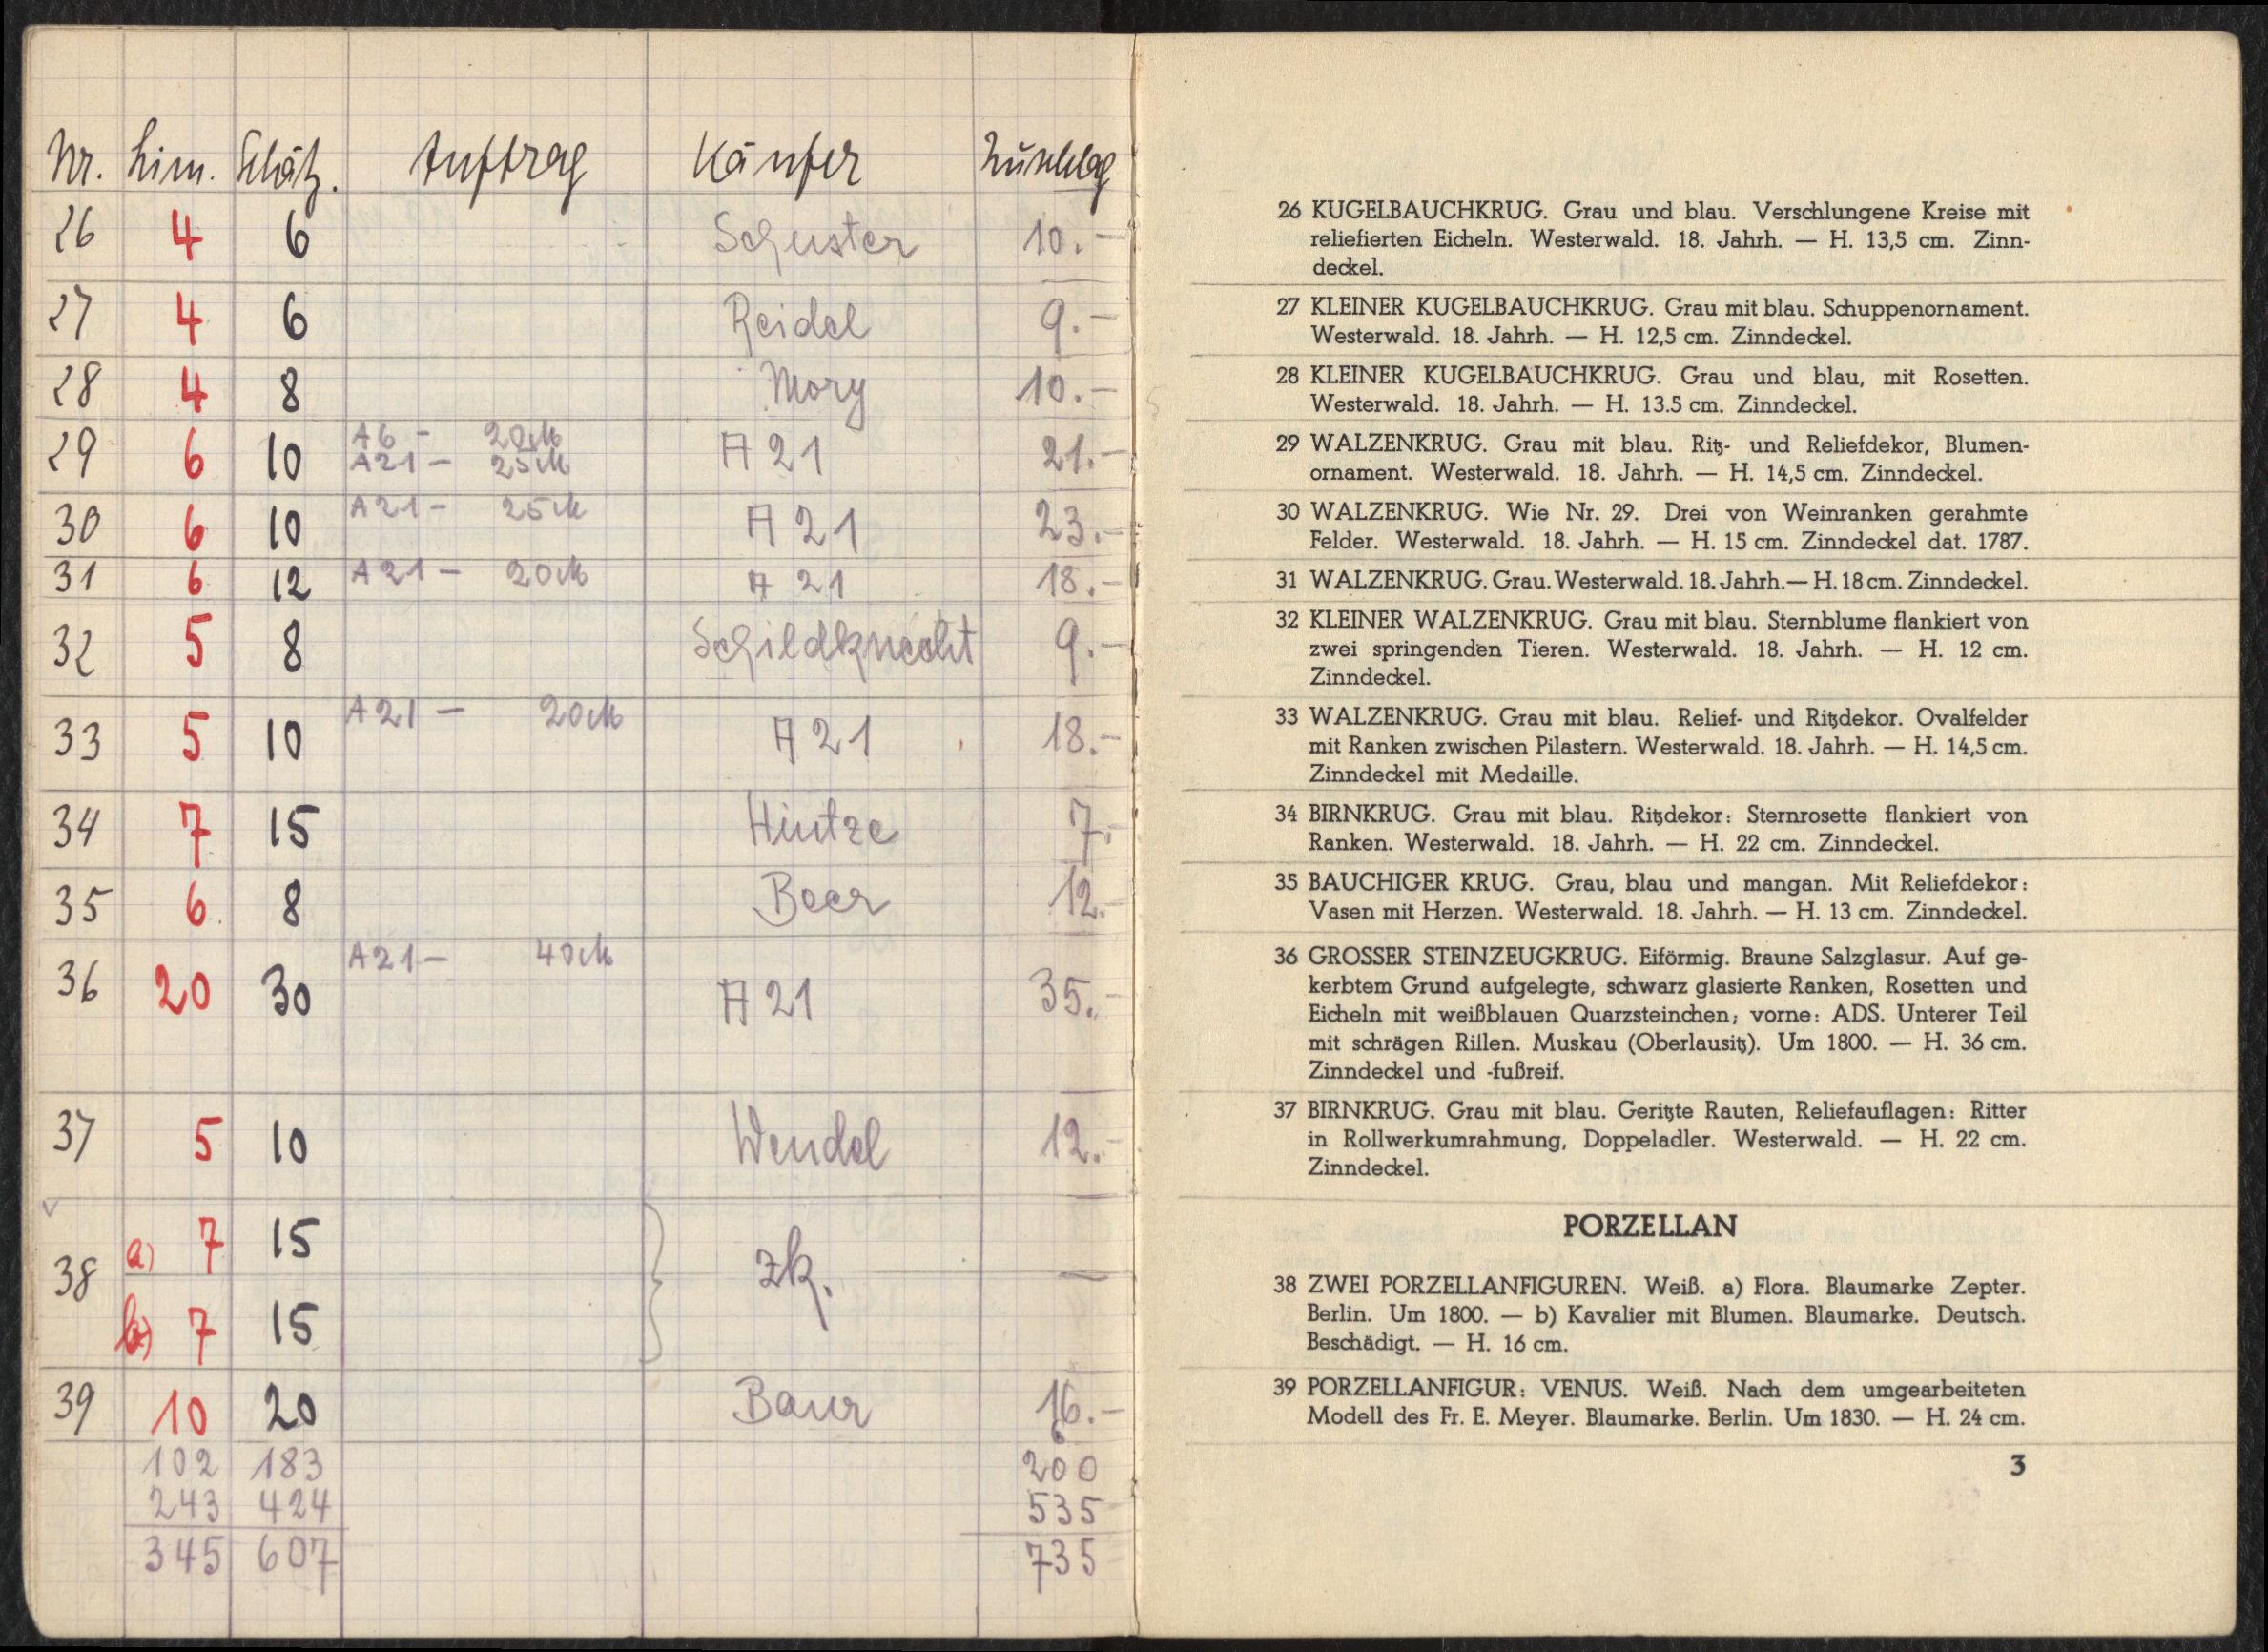 Nr. Lim. Schätz. Auftrag Käufer Zuschlag
26 4 6 Schuster 10.-
27 4 6 Reidel 9.-
28 4 8 Mory 10.-
29 6 10 A6 - 20 M A 21 21.-
A21 - 25 M
30 6 10 A21 - 25 M A 21 23.-
31 6 12 A21 - 20 M A 21 18.-
32 5 8 Schildknecht 9.-
33 5 10 A21 - 20 M A 21 18.-
34 7 15 Hintze 7.-
35 6 8 Beer 12.-
36 20 30 A21 - 40 M A 21 35.-
37 5 10 Wendel 12.-
38 a) 7 15 zk. —
b) 7 15
39 10 20 Baur 16.-
102 183 200
243 424 535
345 607 735
26 KUGELBAUCHKRUG. Grau und blau. Verschlungene Kreise mit
reliefierten Eicheln. Westerwald. 18. Jahrh. — H. 13,5 cm. Zinn-
deckel.
27 KLEINER KUGELBAUCHKRUG. Grau mit blau. Schuppenornament.
Westerwald. 18. Jahrh. — H. 12,5 cm. Zinndeckel.
28 KLEINER KUGELBAUCHKRUG. Grau und blau, mit Rosetten.
Westerwald. 18. Jahrh. — H. 13.5 cm. Zinndeckel.
29 WALZENKRUG. Grau mit blau. Ritz- und Reliefdekor, Blumen-
ornament. Westerwald. 18. Jahrh. — H. 14,5 cm. Zinndeckel.
30 WALZENKRUG. Wie Nr. 29. Drei von Weinranken gerahmte
Felder. Westerwald. 18. Jahrh. — H. 15 cm. Zinndeckel dat. 1787.
31 WALZENKRUG. Grau. Westerwald. 18. Jahrh. — H. 18 cm. Zinndeckel.
32 KLEINER WALZENKRUG. Grau mit blau. Sternblume flankiert von
zwei springenden Tieren. Westerwald. 18. Jahrh. — H. 12 cm.
Zinndeckel.
33 WALZENKRUG. Grau mit blau. Relief- und Ritzdekor. Ovalfelder
mit Ranken zwischen Pilastern. Westerwald. 18. Jahrh. — H. 14,5 cm.
Zinndeckel mit Medaille.
34 BIRNKRUG. Grau mit blau. Ritzdekor: Sternrosette flankiert von
Ranken. Westerwald. 18. Jahrh. — H. 22 cm. Zinndeckel.
35 BAUCHIGER KRUG. Grau, blau und mangan. Mit Reliefdekor:
Vasen mit Herzen. Westerwald. 18. Jahrh. — H. 13 cm. Zinndeckel.
36 GROSSER STEINZEUGKRUG. Eiförmig. Braune Salzglasur. Auf ge-
kerbtem Grund aufgelegte, schwarz glasierte Ranken, Rosetten und
Eicheln mit weißblauen Quarzsteinchen; vorne: ADS. Unterer Teil
mit schrägen Rillen. Muskau (Oberlausitz). Um 1800. — H. 36 cm.
Zinndeckel und -fußreif.
37 BIRNKRUG. Grau mit blau. Geritzte Rauten, Reliefauflagen: Ritter
in Rollwerkumrahmung, Doppeladler. Westerwald. — H. 22 cm.
Zinndeckel.
PORZELLAN
38 ZWEI PORZELLANFIGUREN. Weiß. a) Flora. Blaumarke Zepter.
Berlin. Um 1800. — b) Kavalier mit Blumen. Blaumarke. Deutsch.
Beschädigt. — H. 16 cm.
39 PORZELLANFIGUR: VENUS. Weiß. Nach dem umgearbeiteten
Modell des Fr. E. Meyer. Blaumarke. Berlin. Um 1830. — H. 24 cm.
3